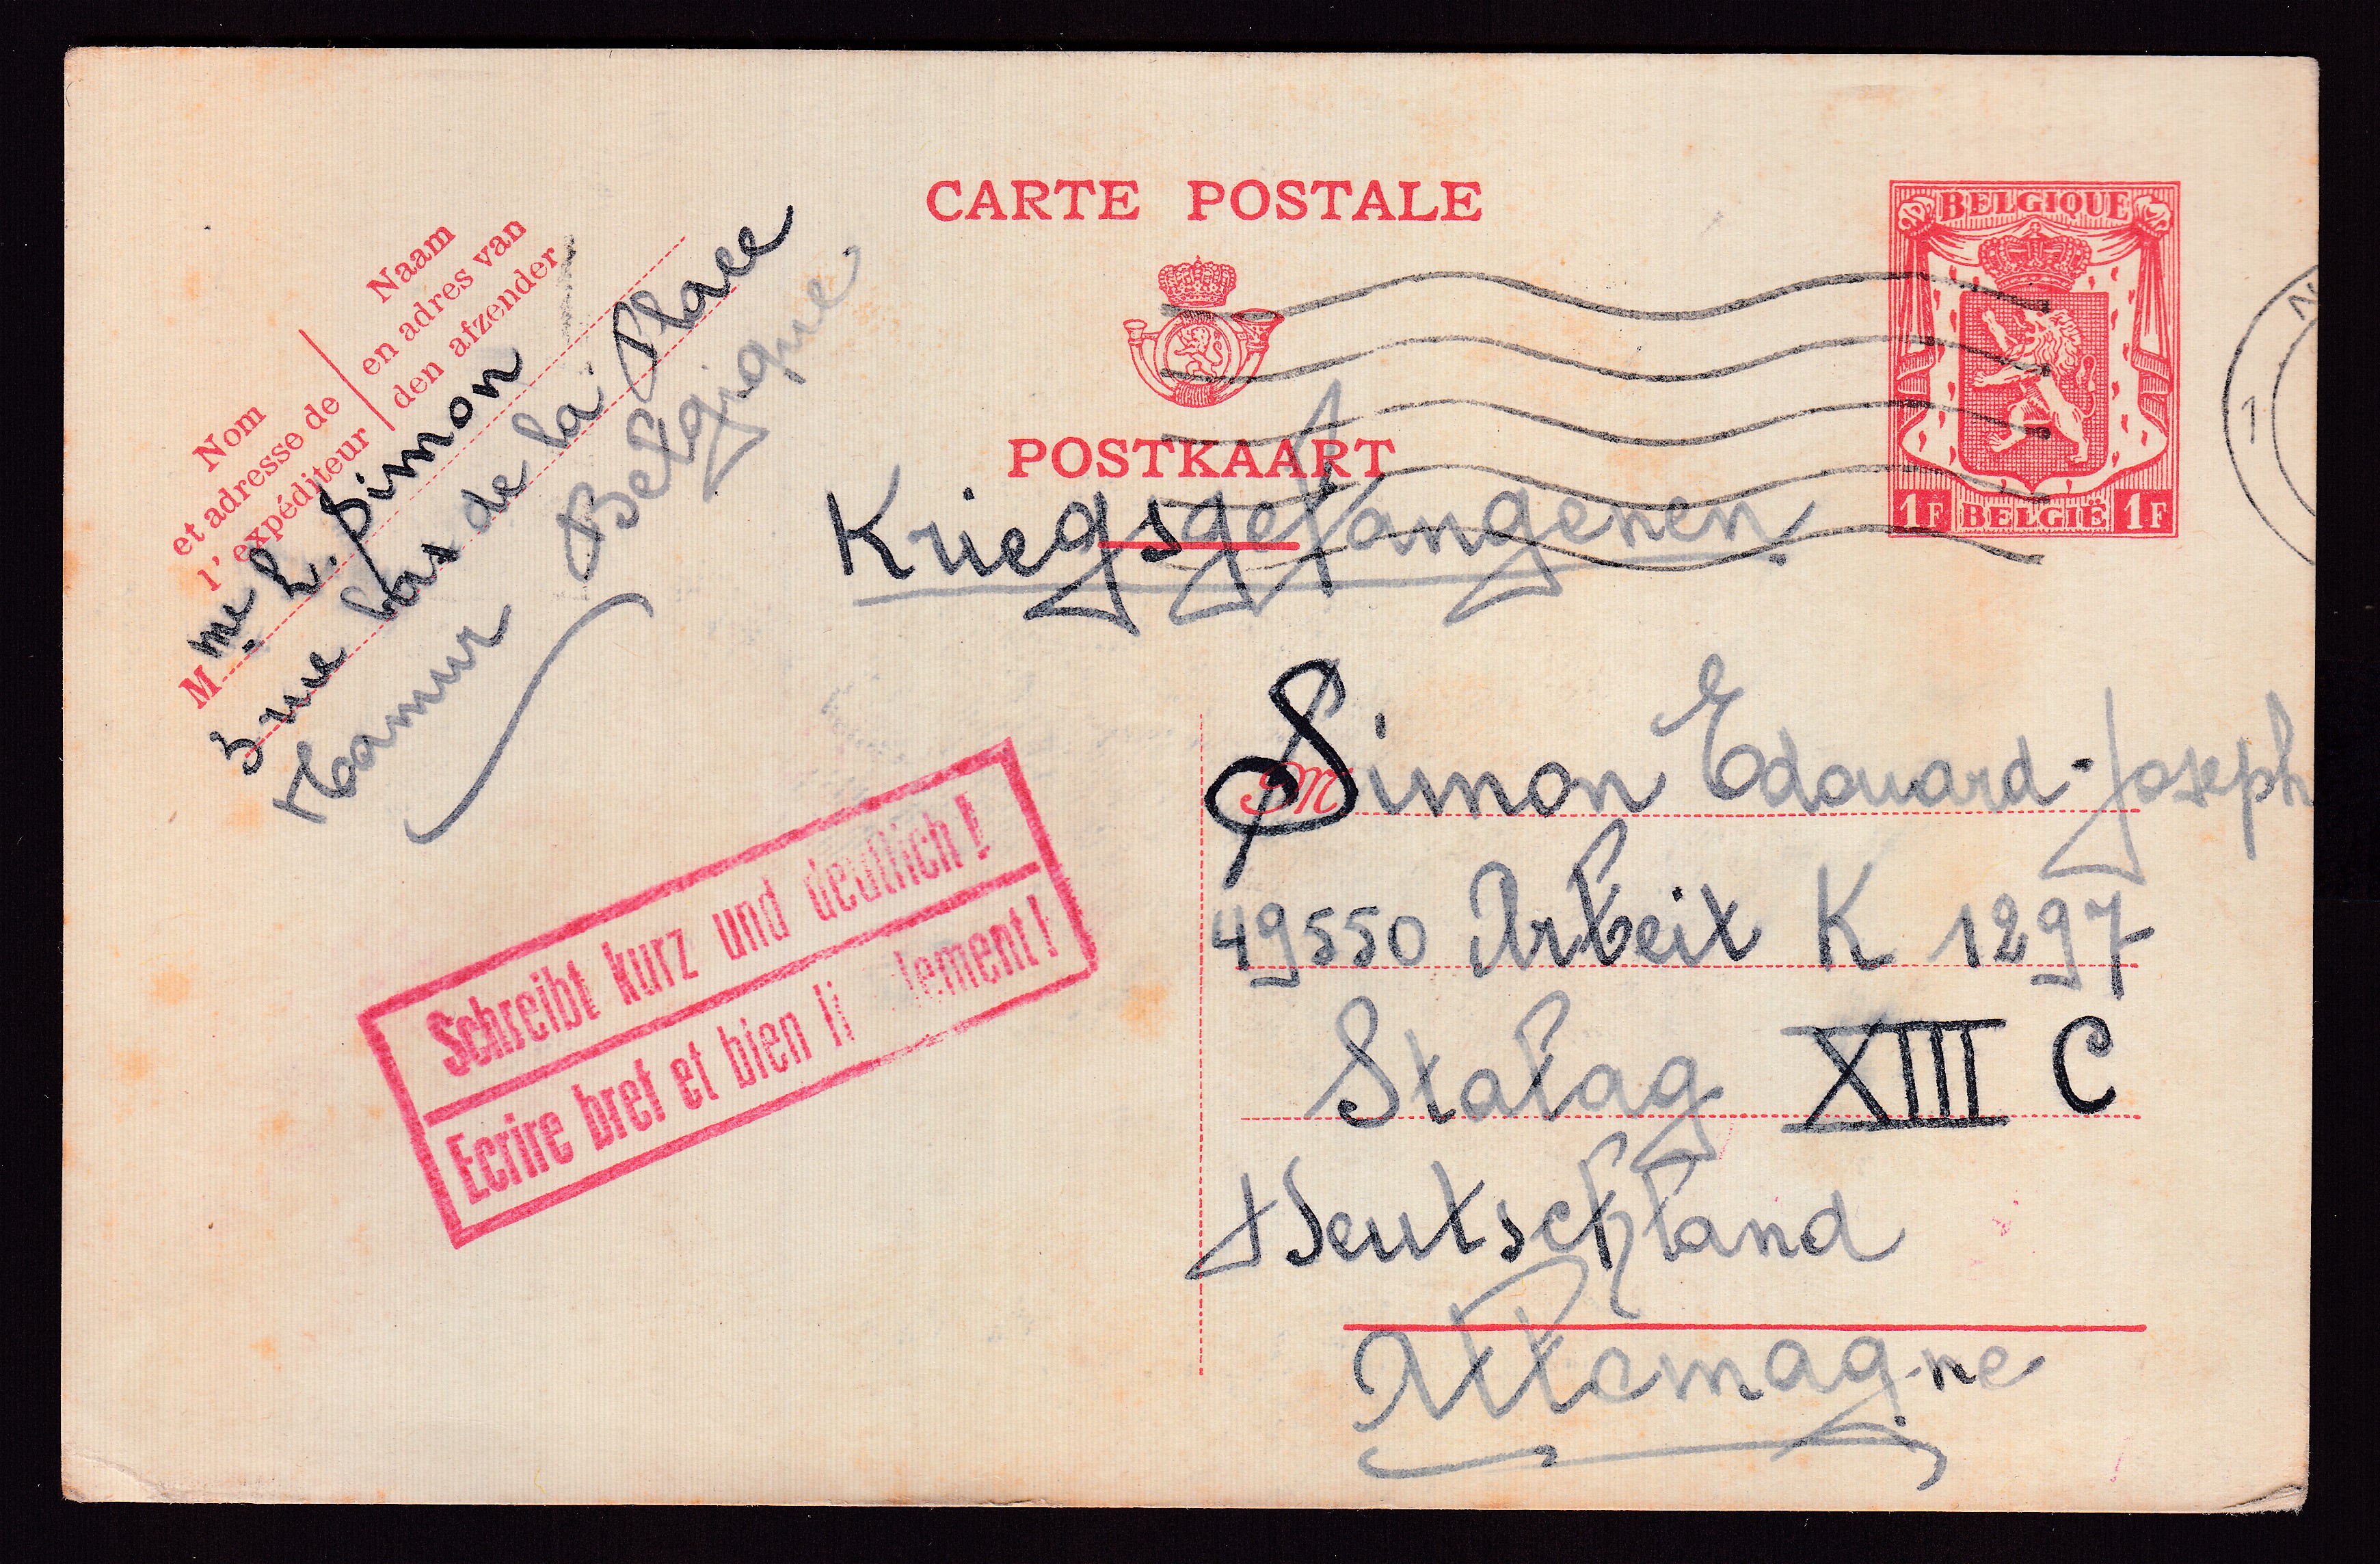 CARTE POSTALE
POSTKAART
BELGIQUE
1F BELGIË 1F
N
1
Naam
en adres van
den afzender
Nom
et adresse de
l'expéditeur
Mme L. Simon
3 rue bas de la Place
Namur
Belgique
Kriegsgefangenen
M Simon Edouard-Joseph
49550 Arbeit K 1297
Stalag XIII C
Deutschland
Allemagne
Schreibt kurz und deutlich!
Ecrire bref et bien li lement!